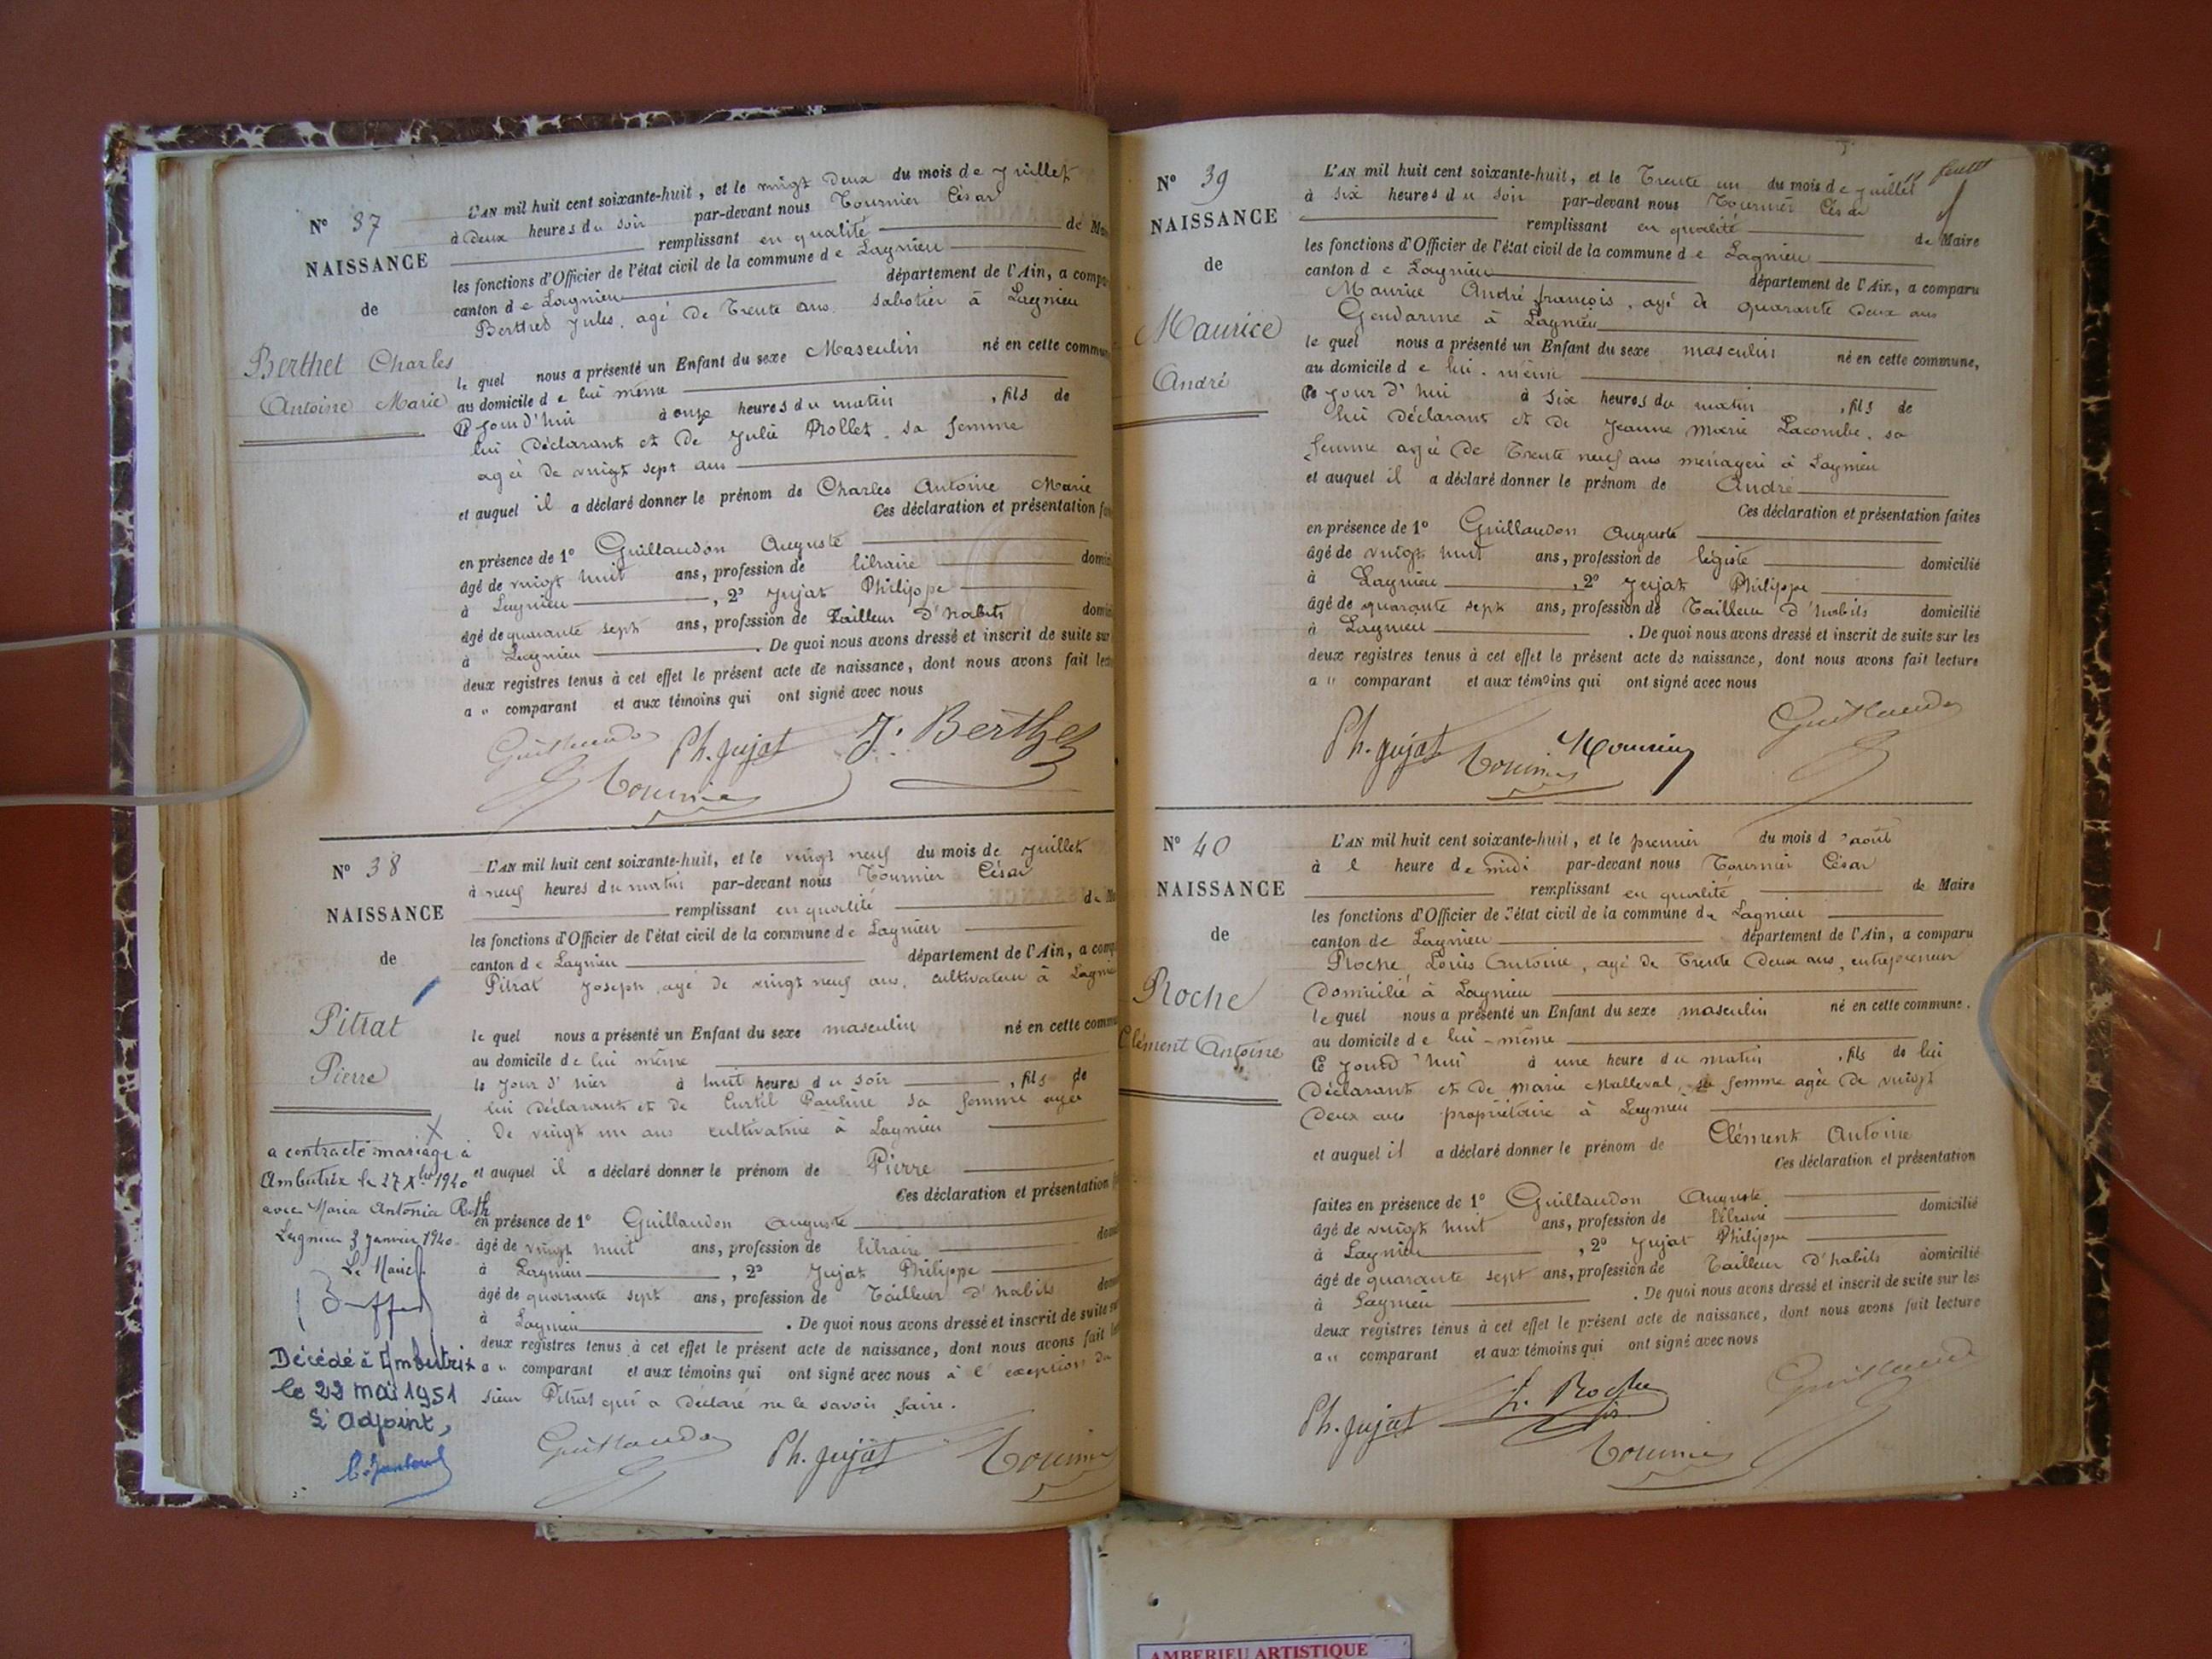 N° 37
NAISSANCE
de
Berthet Charles
Antoine Marie
L'AN mil huit cent soixante-huit, et le vingt deux du mois de Juillet
à Deux heures du soir par-devant nous Tournier César
remplissant en qualité de
les fonctions d'Officier de l'état civil de la commune de Lagnieu
canton de Lagnieu département de l'Ain, a
Berthet Jules, agé De Trente ans, sabotier à Lagnieu
le quel nous a présenté un Enfant du sexe Masculin né en cette
au domicile de lui même
ce jourd'hui à onze heures du matin, fils de
lui Déclarant et De Julie Rollet, sa femme
agée De vingt sept ans
et auquel il a déclaré donner le prénom de Charles Antoine Marie
Ces déclaration et présentation
en présence de 1° Guillaudon Auguste
âgé de vingt huit ans, profession de libraire
à Lagnieu, 2° Jujat Philippe
âgé de quarante sept ans, profession de Tailleur d'habits
à Lagnieu. De quoi nous avons dressé et inscrit de suite sur
deux registres tenus à cet effet le présent acte de naissance, dont nous avons fait
a u comparant et aux témoins qui ont signé avec nous
Guillaudon Ph. Jujat J. Berthet
Tournier
N° 38
NAISSANCE
de
Pitrat
Pierre
X
a contracté mariage à
Ambutrix le 27 Xbre 1920
avec Maria Antonia Roth
Lagnieu 3 Janvier 1920
Le Maire
Décédé à Ambutrix
le 22 mai 1951
L'Adjoint,
L'AN mil huit cent soixante-huit, et le vingt neuf du mois de Juillet
à neuf heures du matin par-devant nous Tournier César
remplissant en qualité de
les fonctions d'Officier de l'état civil de la commune de Lagnieu
canton de Lagnieu département de l'Ain, a
Pitrat Joseph, agé de vingt neuf ans, cultivateur à
le quel nous a présenté un Enfant du sexe masculin né en cette
au domicile de lui même
le Jour d'hier à huit heures du soir, fils de
lui déclarant et de Curtil Pauline sa femme agée
De vingt un ans cultivatrice à Lagnieu
et auquel il a déclaré donner le prénom de Pierre
Ces déclaration et présentation
en présence de 1° Guillaudon Auguste
âgé de vingt huit ans, profession de libraire
à Lagnieu, 2° Jujat Philippe
âgé de quarante sept ans, profession de Tailleur d'habits
à Lagnieu. De quoi nous avons dressé et inscrit de suite
deux registres tenus à cet effet le présent acte de naissance, dont nous avons fait
a u comparant et aux témoins qui ont signé avec nous à l'exception du
sieur Pitrat qui a déclaré ne le savoir faire.
Guillaudon Ph. Jujat Tournier
19 feuillet
N° 39
NAISSANCE
de
Maurice
André
L'AN mil huit cent soixante-huit, et le Trente un du mois de Juillet
à six heures du soir par-devant nous Tournier César
remplissant en qualité de Maire
les fonctions d'Officier de l'état civil de la commune de Lagnieu
canton de Lagnieu département de l'Ain, a comparu
Maurice André françois, agé de quarante deux ans
Gendarme à Lagnieu
le quel nous a présenté un Enfant du sexe masculin né en cette commune,
au domicile de lui-même
ce jour d'hui à six heures du matin, fils de
lui Déclarant et de Jeanne Marie Lacombe, sa
femme agée De Trente neuf ans menagere à Lagnieu
et auquel il a déclaré donner le prénom de André
Ces déclaration et présentation faites
en présence de 1° Guillaudon Auguste
âgé de vingt huit ans, profession de légiste domicilié
à Lagnieu, 2° Jujat Philippe
âgé de quarante sept ans, profession de Tailleur d'habits domicilié
à Lagnieu. De quoi nous avons dressé et inscrit de suite sur les
deux registres tenus à cet effet le présent acte de naissance, dont nous avons fait lecture
a u comparant et aux témoins qui ont signé avec nous
Ph. Jujat Tournier Maurice Guillaudon
N° 40
NAISSANCE
de
Roche
Clément Antoine
L'AN mil huit cent soixante-huit, et le premier du mois d'août
à l heure de midi par-devant nous Tournier César
remplissant en qualité de Maire
les fonctions d'Officier de l'état civil de la commune de Lagnieu
canton de Lagnieu département de l'Ain, a comparu
Roche Louis Antoine, agé de Trente Deux ans, entrepreneur
Domicilié à Lagnieu
le quel nous a présenté un Enfant du sexe masculin né en cette commune.
au domicile de lui-même
ce jourd'hui à une heure du matin, fils de lui
Déclarant et de Marie Malleval, sa femme agée De vingt
Deux ans propriétaire à Lagnieu
et auquel il a déclaré donner le prénom de Clément Antoine
Ces déclaration et présentation
faites en présence de 1° Guillaudon Auguste
âgé de vingt huit ans, profession de libraire domicilié
à Lagnieu, 2° Jujat Philippe
âgé de quarante sept ans, profession de Tailleur d'habits domicilié
à Lagnieu. De quoi nous avons dressé et inscrit de suite sur les
deux registres tenus à cet effet le présent acte de naissance, dont nous avons fait lecture
a u comparant et aux témoins qui ont signé avec nous
Ph. Jujat L. Roche fils Guillaudon
Tournier
AMBERIEU ARTISTIQUE